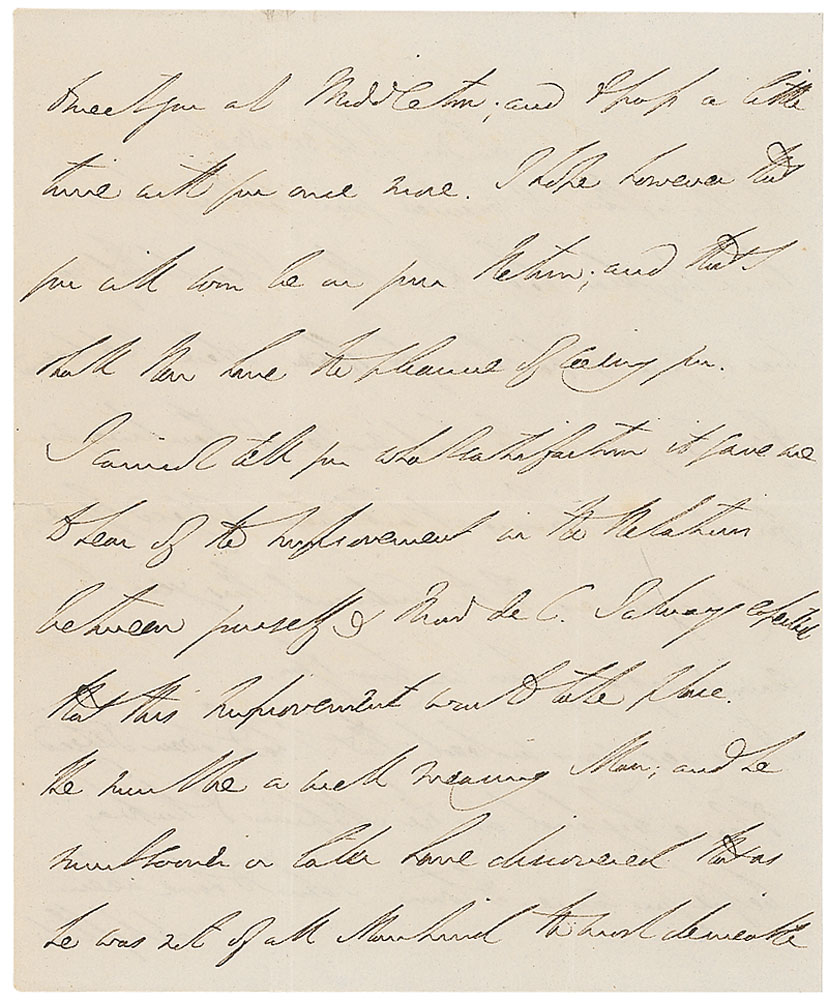 to meet you at Middleton; and to pass a little
time with you once more. I hope however that
you will soon be on your Return; and that I
shall then have the pleasure of seeing you.
I cannot tell you what satisfaction it gave me
to hear of the improvement in the Relations
between yourself & Mons de C. I always expected
that this improvement would take place.
He must be a well meaning Man; and he
must sooner or later have discovered that as
he was not of all Mankind the most